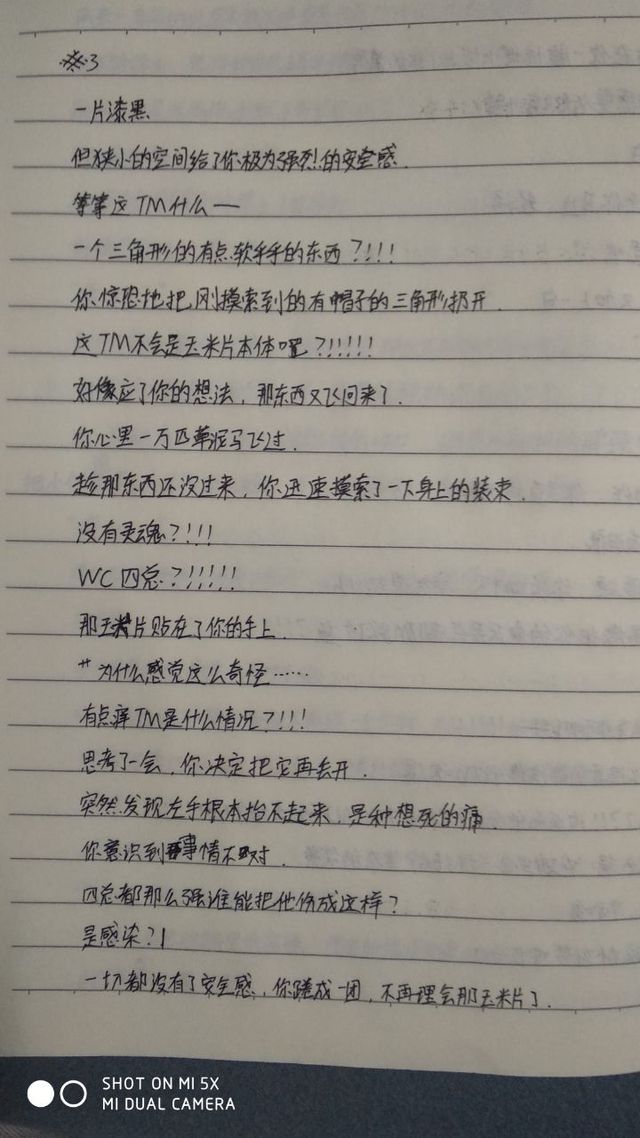 ※3
一片漆黑
但狭小的空间给了你极为强烈的安全感.
等等这TM什么—
一个三角形的有点软乎乎的东西?!!!
你惊恐地把刚摸索到的有帽子的三角形扔开.
这TM不会是玉米片本体吧?!!!!!
好像应了你的想法,那东西又飞回来了.
你心里一万匹草泥马飞过.
趁那东西还没过来,你迅速摸索了一下身上的装束.
没有灵魂?!!!
WC四总?!!!!!
那玉米片贴在了你的手上.
"为什么感觉这么奇怪……
有点痒TM是什么情况?!!!
思考了一会,你决定把它再丢开.
突然发现左手根本抬不起来,是种想死的痛.
你意识到事情不对.
四总都那么强谁能把他伤成这样?
是感染?!
一切都没有了安全感,你蜷成一团,不再理会那玉米片了.
SHOT ON MI 5X
MI DUAL CAMERA